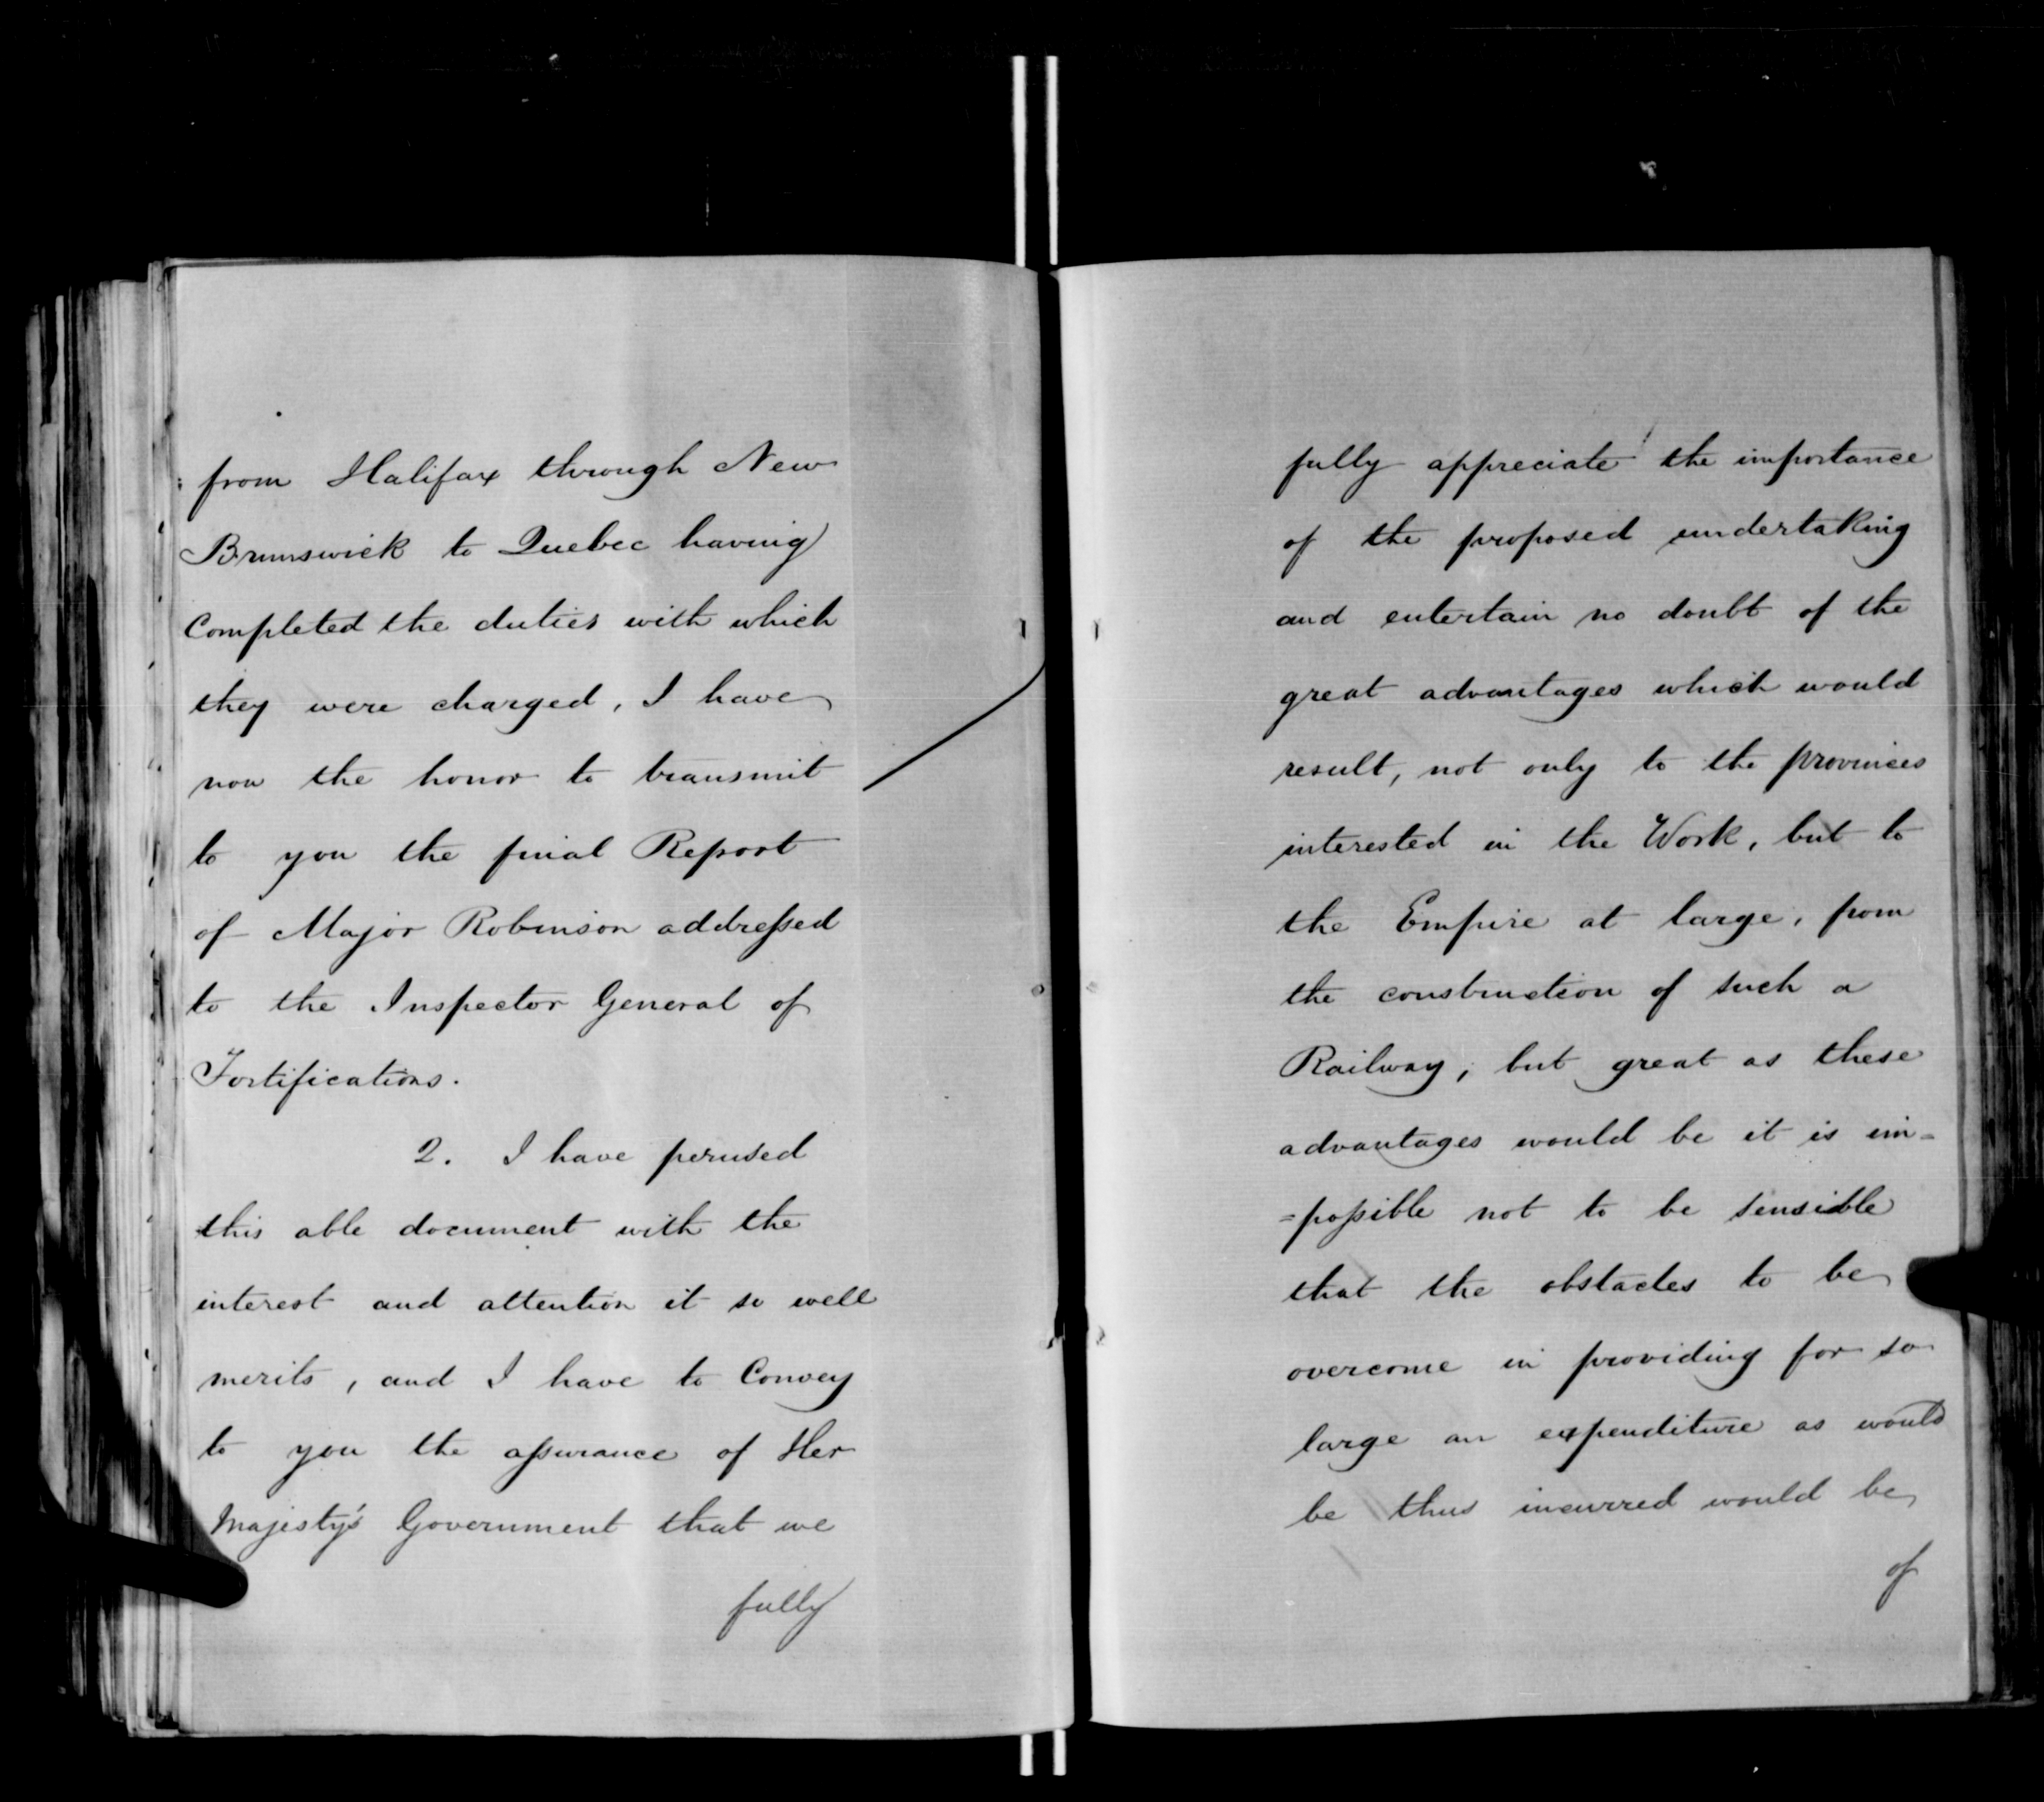 from Halifax through New
Brunswick to Quebec having
completed the duties with which
they were charged, I have
now the honor to transmit
to you the final Report
of Major Robinson addressed
to the Inspector General of
Fortifications.
2. I have perused
this able document with the
interest and attention it so well
merits, and I have to convey
to you the assurance of Her
Majesty's Government that we
fully
fully appreciate the importance
of the proposed undertaking
and entertain no doubt of the
great advantages which would
result, not only to the provinces
interested in the Work, but to
the Empire at large, from
the construction of such a
Railway; but great as these
advantages would be it is im=
=possible not to be sensible
that the obstacles to be
overcome in providing for so
large an expenditure as would
be thus incurred would be
of